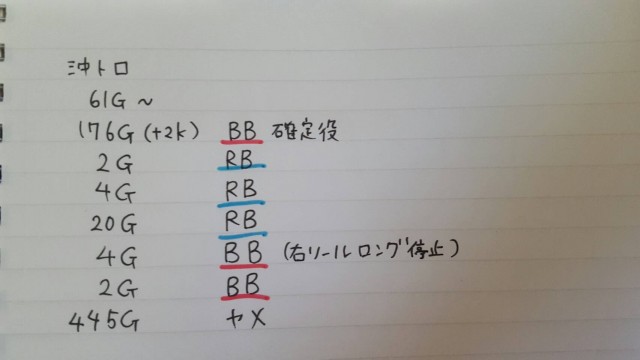 沖トロ
61G～
176G(+2k) BB 確定役
2G RB
4G RB
20G RB
4G BB (右リールロング停止)
2G BB
445G ヤメ